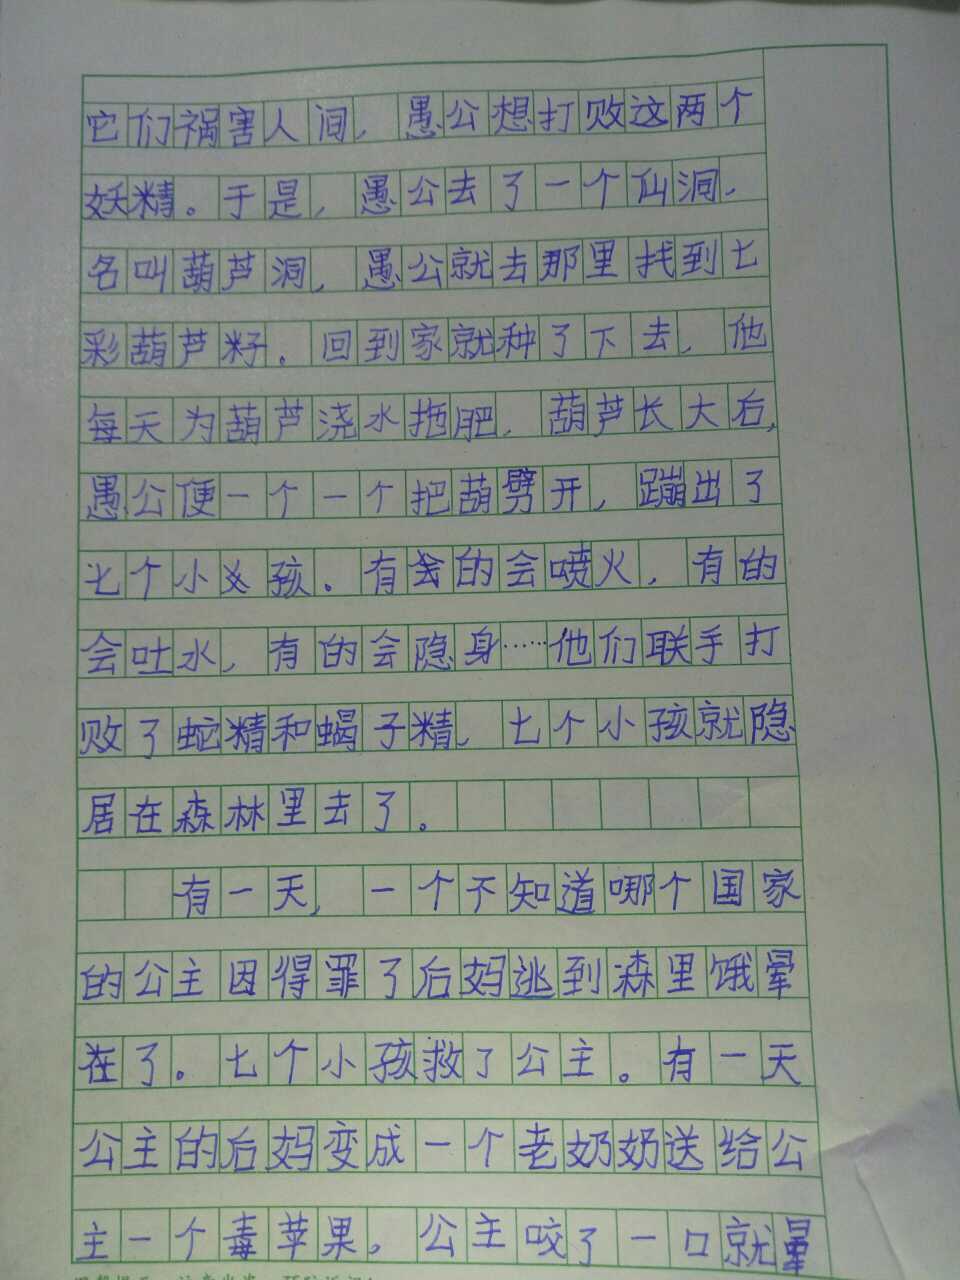 它们祸害人间,愚公想打败这两个
妖精。于是,愚公去了一个仙洞,
名叫葫芦洞,愚公就去那里找到七
彩葫芦籽。回到家就种了下去,他
每天为葫芦浇水拖肥,葫芦长大后,
愚公便一个一个把葫劈开,蹦出了
七个小孩。有的会喷火,有的
会吐水,有的会隐身……他们联手打
败了蛇精和蝎子精,七个小孩就隐
居在森林里去了。
有一天,一个不知道哪个国家
的公主因得罪了后妈逃到森里饿晕
在了。七个小孩救了公主。有一天
公主的后妈变成一个老奶奶送给公
主一个毒苹果,公主咬了一口就晕